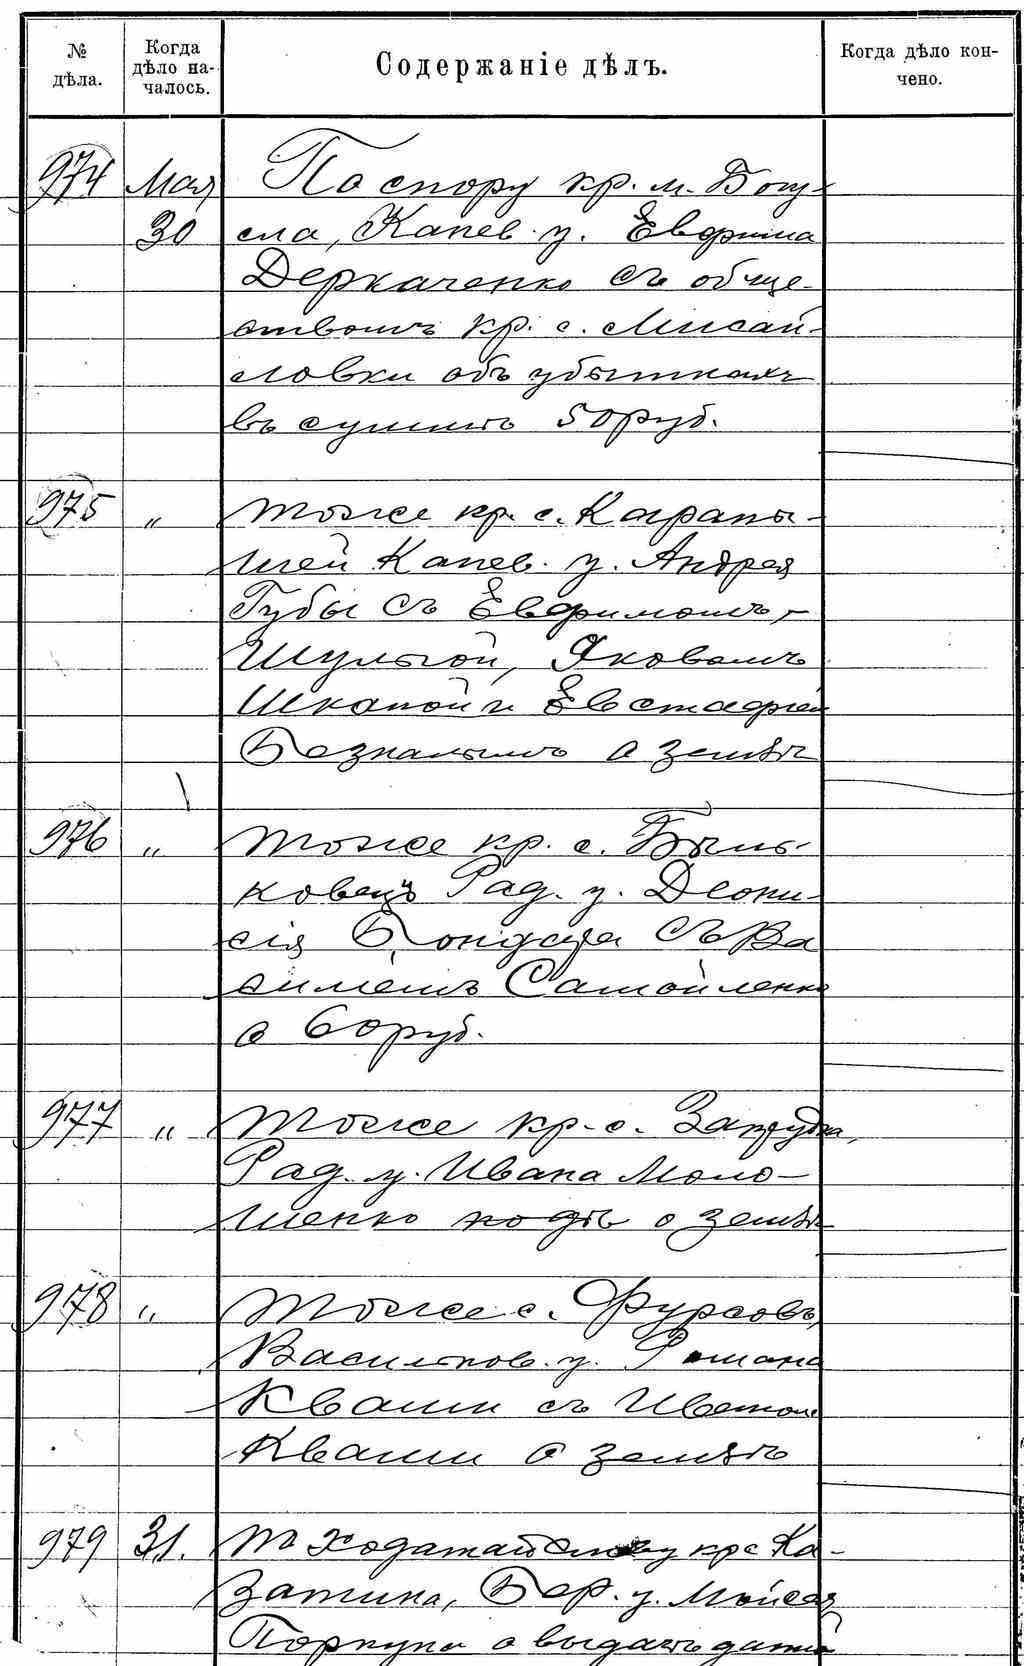 № дѣла.
Когда дѣло началось.
Содержаніе дѣлъ.
Когда дѣло кончено.
974 Мая По спору кр. м. Богу-
30 сла, Канев. у. Евфима
Деркаченко съ обще-
ствомъ кр. с. Мисай-
ловки объ убыткахъ
въ суммѣ 50 руб.
975 " тоже кр. с. Карапы-
шей Канев. у. Андрея
Губы съ Евфимомъ
Шулыгой, Яковомъ
Шкапой и Евстафіем
Безпалымъ о землѣ
976 " тоже кр. с. Быш-
ковецъ Рад. у. Деони-
сія Бондаря съ Ва
силіемъ Самойленко
о 60 руб.
977 " тоже кр. с. Запрудка,
Рад. у. Ивана Моло-
шенко о землѣ
978 " тоже с. Фурсовъ,
Васильков. у. Романа
Кваши съ Иваном
Кваши о землѣ
979 31. По ходатайству кр с Ка-
затина, Бер. у. Мойсея
Поркуна о выдачѣ данной